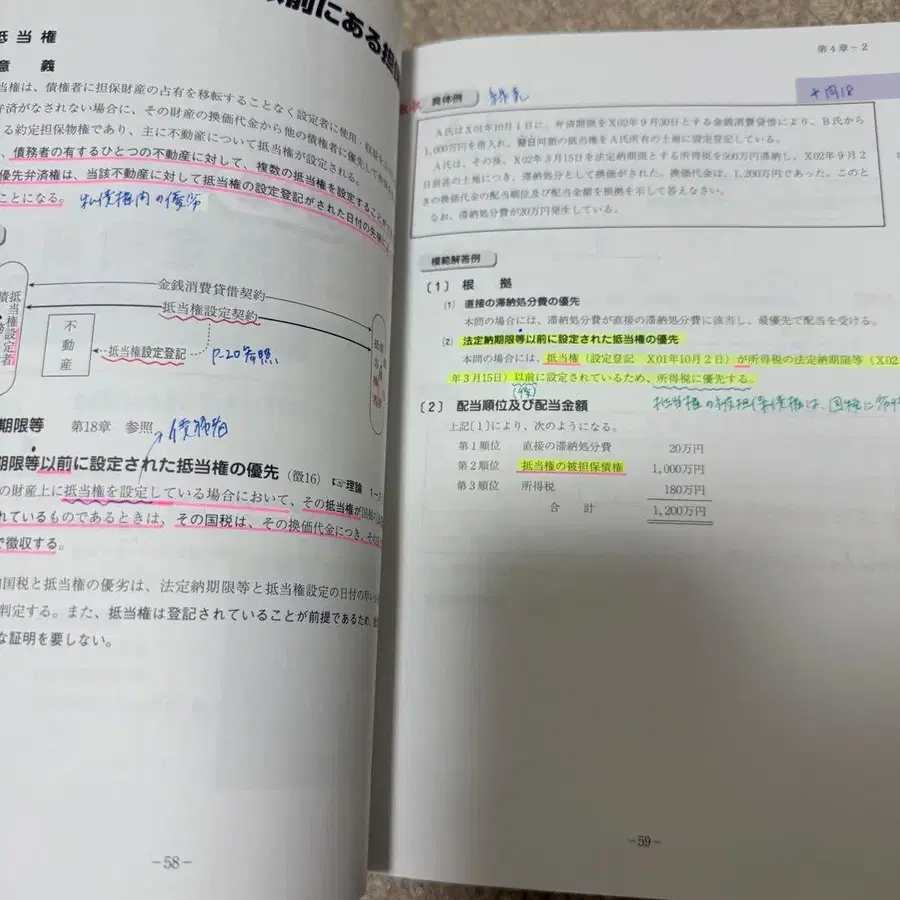 前にある担
抵当権
意義
当権は、債権者に担保財産の占有を移転することなく設定者に使用・収益を
弁済がなされない場合に、その財産の換価代金から他の債権者に優先して弁済
る約定担保物権であり、主に不動産について抵当権が設定される。
、債務者の有するひとつの不動産に対して、複数の抵当権を設定することが
優先弁済権は、当該不動産に対して抵当権の設定登記がされた日付の先後によ
ことになる。 私債権内の優劣
金銭消費貸借契約
抵当権設定契約
抵当権設定者
不動産
抵当権設定登記
P.20参照
期限等 第18章 参照 債務者
期限等以前に設定された抵当権の優先（徴16） ☞理論
の財産上に抵当権を設定している場合において、その抵当権が
れているものであるときは、その国税は、その換価代金につき、
で徴収する。
国税と抵当権の優劣は、法定納期限等と抵当権設定の日付の
判定する。また、抵当権は登記されていることが前提であるため、
な証明を要しない。
－58－
第４章－２
具体例
A氏はX01年10月１日に、弁済期限をX02年９月30日とする金銭消費貸借により、B氏から
1,000万円を借入れ、翌日同額の抵当権をA氏所有の土地に設定登記している。
A氏は、その後、X02年３月15日を法定納期限とする所得税を500万円滞納し、X02年９月２
日前述の土地につき、滞納処分として換価がされた。換価代金は、1,200万円であった。このと
きの換価代金の配当順位及び配当金額を根拠を示して答えなさい。
なお、滞納処分費が20万円発生している。
模範解答例
〔１〕 根拠
(1) 直接の滞納処分費の優先
本問の場合には、滞納処分費が直接の滞納処分費に該当し、最優先で配当を受ける。
(2) 法定納期限等以前に設定された抵当権の優先
本問の場合には、抵当権（設定登記 X01年10月２日）が所得税の法定納期限等（X02
年３月15日）以前に設定されているため、所得税に優先する。
(徴)
抵当権の被担保債権は、国税に
〔２〕 配当順位及び配当金額
上記〔１〕により、次のようになる。
第１順位 直接の滞納処分費 20万円
第２順位 抵当権の被担保債権 1,000万円
第３順位 所得税 180万円
合計 1,200万円
－59－